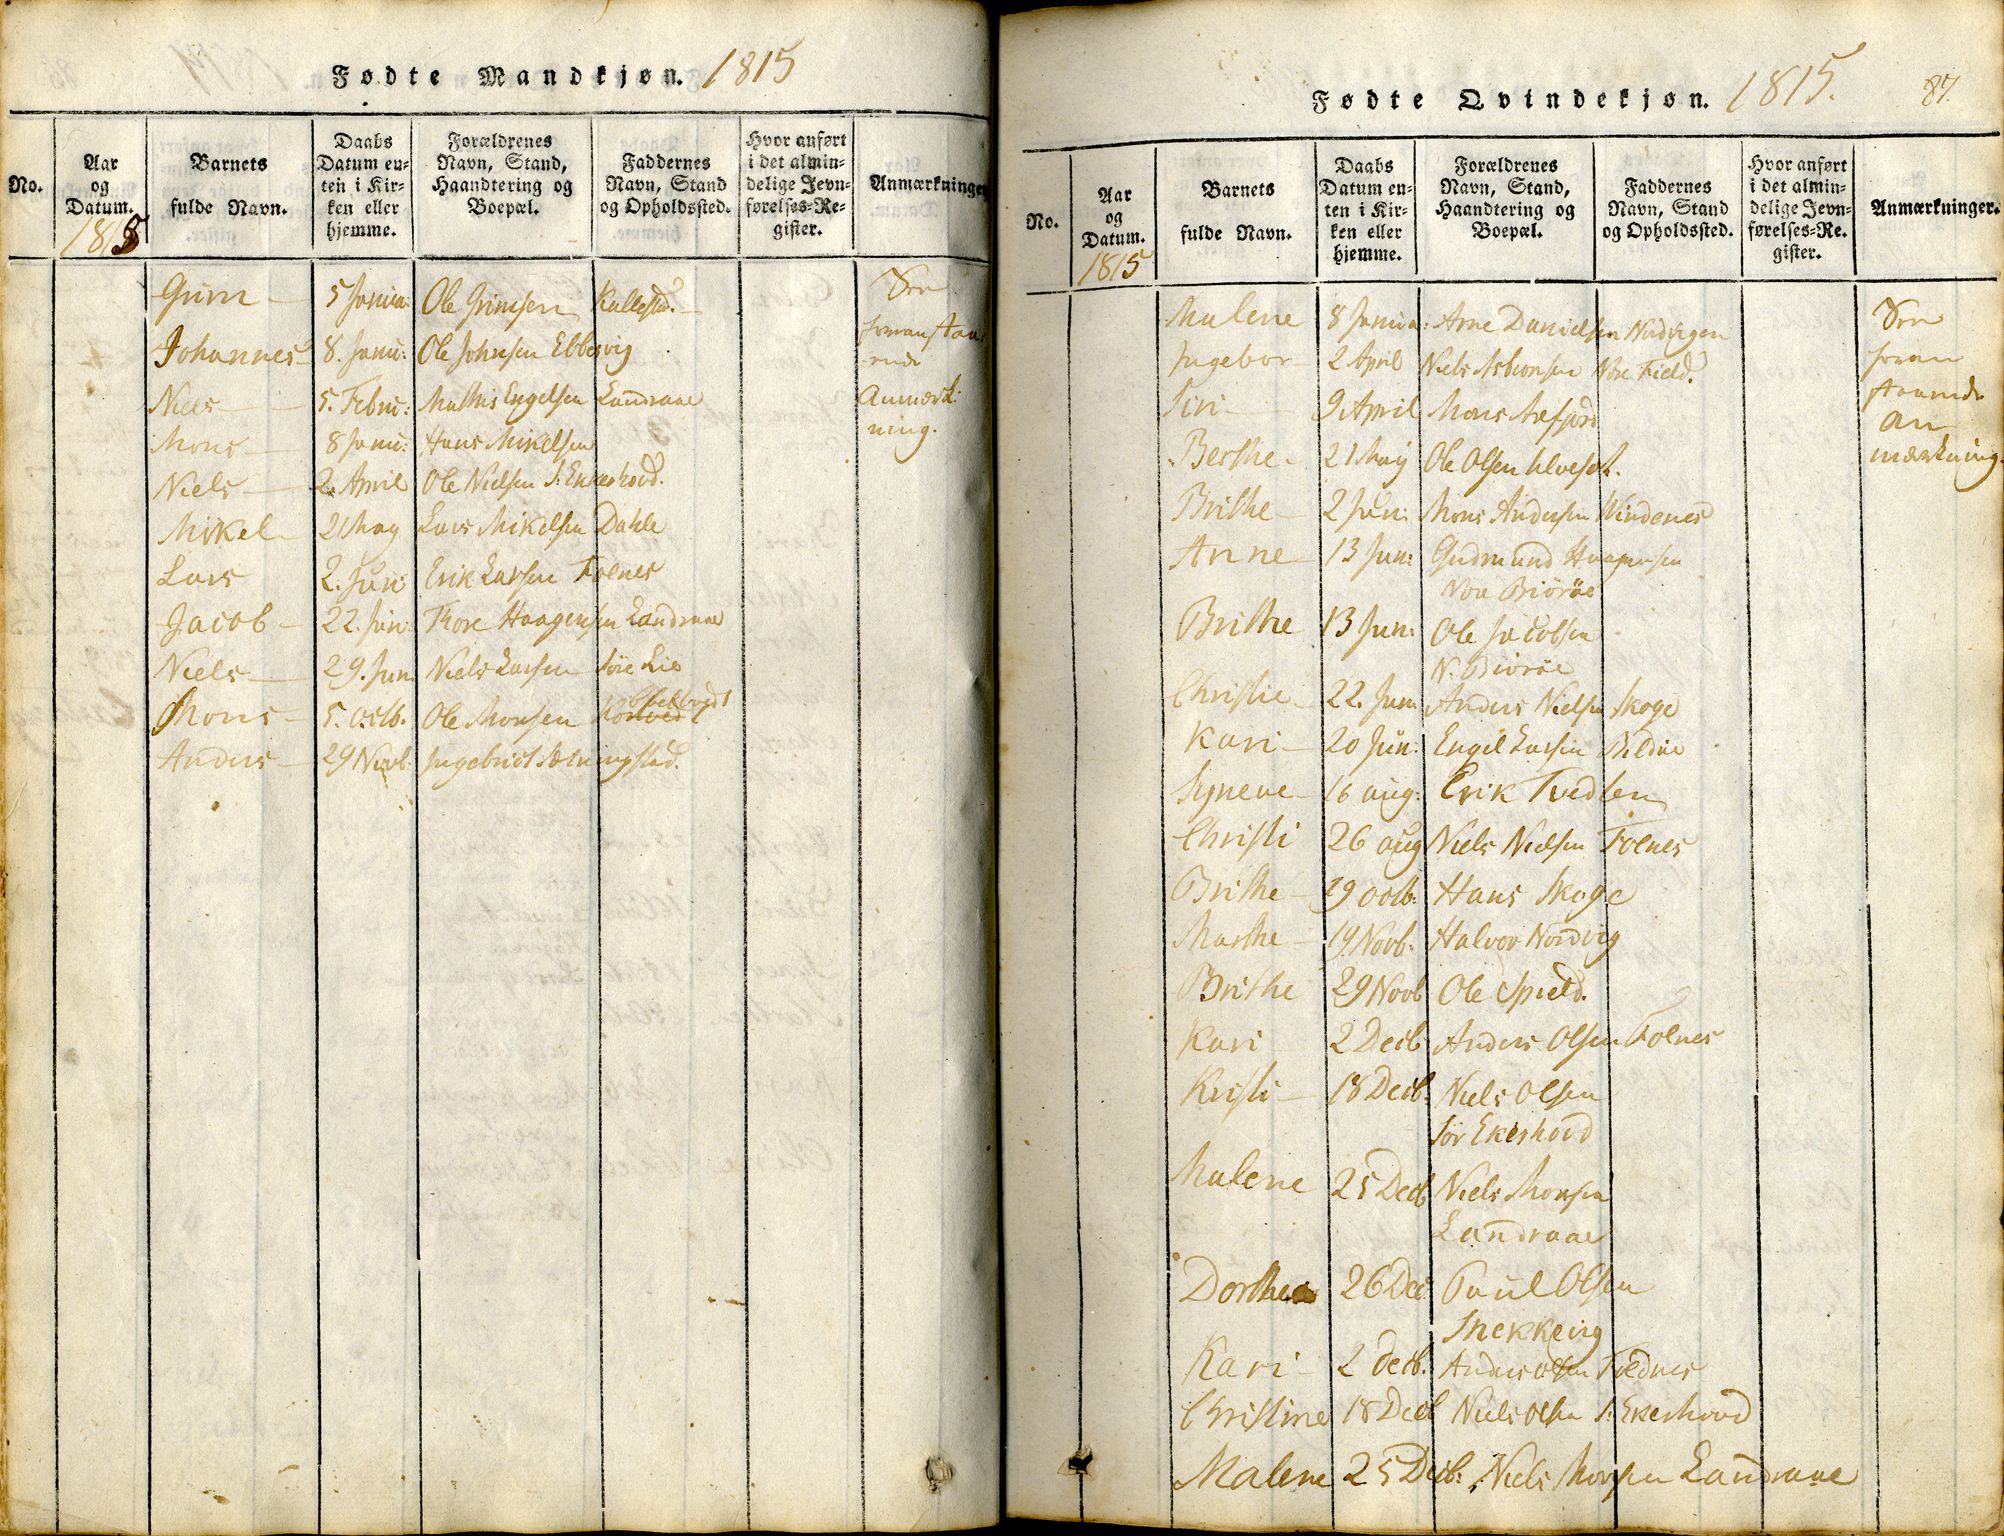 Fødte Mandkjøn. 1815
No.
Aar og Datum. 1815
Barnets fulde Navn.
Daabs Datum enten i Kirken eller hjemme.
Forældrenes Navn, Stand, Haandtering og Boepæl.
Faddernes Navn, Stand og Opholdssted.
Hvor anført i det almindelige Jevnførelses-Register.
Anmærkninger
Grim 5 Janua: Ole Grimsen Kallestad.
Johannes 8. Janu: Ole Johnsen Ebbesvig
Niels 5. Febru: Mathis Engelsen Landraae
Mons 8 Janu: Hans Mikelsen
Niels 2. April Ole Nielsen S: Ekershovd.
Mikel 21 May Lars Mikelsen Dahle
Lars 2. Jun: Erik Larsen Foenes
Jacob 22. Jun: Thore Haagensen Landraae
Niels 29. Jun: Niels Larsen Søre Lie
Mons 5. Octb. Ole Monsen
Anders 29 Novb. Ingebrict
foranstaa
ende
Anmærk:
ning.
Fødte Qvindekjøn. 1815.
87.
No.
Aar og Datum. 1815
Barnets fulde Navn.
Daabs Datum enten i Kirken eller hjemme.
Forældrenes Navn, Stand, Haandtering og Boepæl.
Faddernes Navn, Stand og Opholdssted.
Hvor anført i det almindelige Jevnførelses-Re. gister.
Anmærkninger.
Malene 8 Janua: Arne Danielsen
Ingebor 2 April Niels
Siri 9 April Mons
Berthe 21 May Ole Olsen Ulveset.
Brithe 2 Jun: Mons Andersen Windenes
Anne 13 Jun: Gudmund Haagensen
Nore Biørøe
Brithe 13 Jun: Ole Jacobsen
N. Biørøe
Christie 22. Jun: Anders Nielsen Skoge
Kari 20 Jun: Engel Larsen Bildøe
Syneve 16 aug: Erik Tvedten
Christi 26 aug Niels Nielsen Foenes
Brithe 29 octb: Hans Skoge
Marthe 19 Novb: Halvor Nordvig
Brithe 29 Novb Ole Spield.
Kari 2 Decb Anders Olsen Folnes
Kristi 18 Decb: Niels Olsen
Sør Ekershovd
Malene 25 Decb Niels Monsen
Landraae
Dorthea 26 Dec Paul Olsen
Snekkevig
Kari 2 Decb. Anders Olsen
Christine 18 Decb Niels Olsen S: Ekershovd
Malene 25 Decb: Niels Monsen Landraae
foran
staaende
An
mærkning.